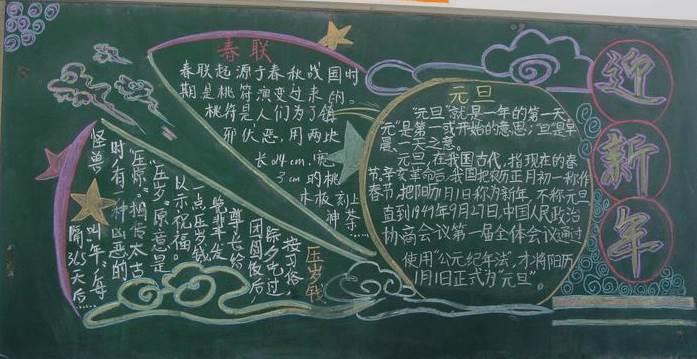 春联
春联起源于春秋战国时
期是桃符演变过来的。
桃符是人们为了镇
邪伏恶,用两块
长24cm,宽
3cm的桃
木板刻上
神荼……
元旦
"元旦"就是一年的第一天
"元"是第一或开始的意思;"旦"是早
晨、一天之意。
元旦,在我国古代,指现在的春
节,辛亥革命后,我国把农历正月初一称作
春节,把阳历1月1日称为新年,不称元旦
直到1949年9月27日,中国人民政治
协商会议第一届全体会议通过
使用"公元纪年法",才将阳历
1月1日正式为"元旦"。
压岁钱
按习俗
除夕吃过
团圆饭后,
尊长给
晚辈半发
一点压岁钱
以示祝福。
"压岁"原意是
"压惊"相传太古
时,有一种凶恶的
怪兽
叫年,每
隔365天后……
迎
新
年